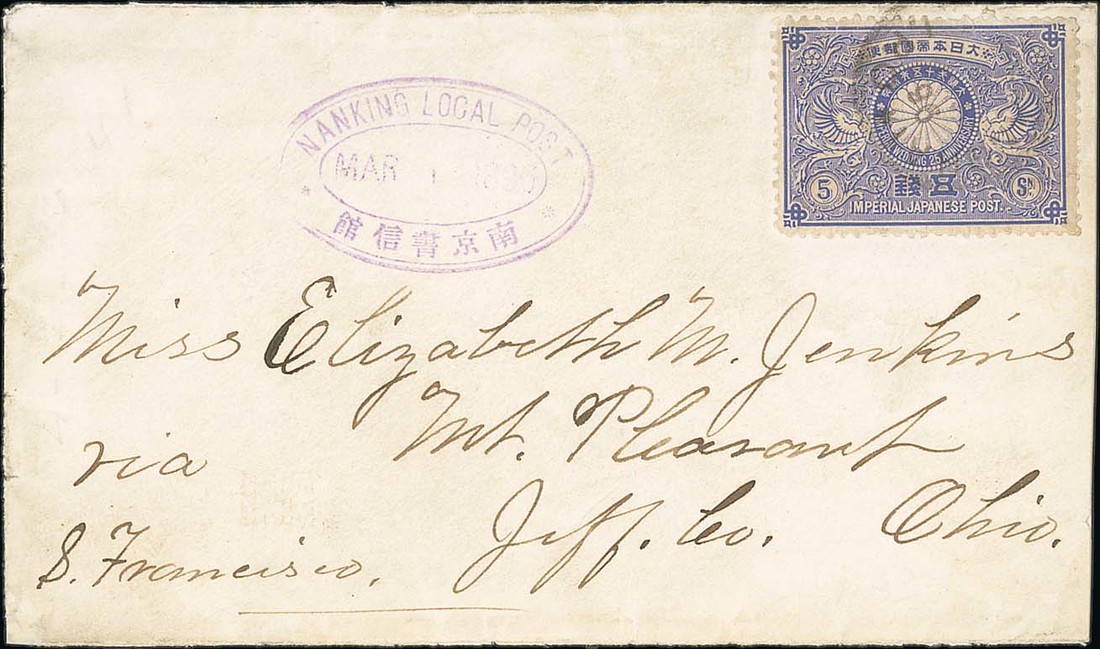 NANKING LOCAL POST
MAR 1 189
南京書信館
大日本帝國郵便
WEDDING 25 ANNIVERSARY
5 錢五 Sn
IMPERIAL JAPANESE POST.
Miss Elizabeth M. Jenkins
Mt. Pleasant
via
Jeff. Co. Ohio.
S. Francisco.